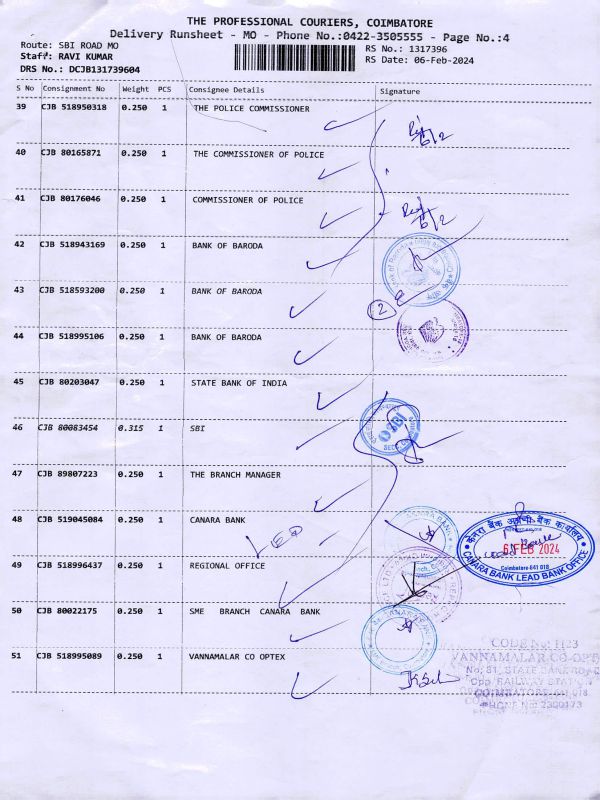 THE PROFESSIONAL COURIERS, COIMBATORE
Delivery Runsheet - MO - Phone No.:0422-3505555 - Page No.:4
Route: SBI ROAD MO
RS No.: 1317396
Staff: RAVI KUMAR
RS Date: 06-Feb-2024
DRS No.: DCJB131739604
S No Consignment No Weight PCS Consignee Details Signature
39 CJB 518950318 0.250 1 THE POLICE COMMISSIONER
6/2
40 CJB 80165871 0.250 1 THE COMMISSIONER OF POLICE
41 CJB 80176046 0.250 1 COMMISSIONER OF POLICE
6/2
42 CJB 518943169 0.250 1 BANK OF BARODA
43 CJB 518593200 0.250 1 BANK OF BARODA
2
44 CJB 518995106 0.250 1 BANK OF BARODA
45 CJB 80203047 0.250 1 STATE BANK OF INDIA
46 CJB 80083454 0.315 1 SBI
SBI
47 CJB 89807223 0.250 1 THE BRANCH MANAGER
48 CJB 519045084 0.250 1 CANARA BANK
केनरा बैंक अग्रणी बैंक कार्यालय
6 FEB 2024
Coimbatore 641 018
CANARA BANK LEAD BANK OFFICE
49 CJB 518996437 0.250 1 REGIONAL OFFICE
50 CJB 80022175 0.250 1 SME BRANCH CANARA BANK
51 CJB 518995089 0.250 1 VANNAMALAR CO OPTEX
CODE No: 1123
VANNAMALAR CO-OPTEX
No: 81, STATE BANK ROAD
Opp RAILWAY STATION
COIMBATORE-641 018
PHONE No: 2300173